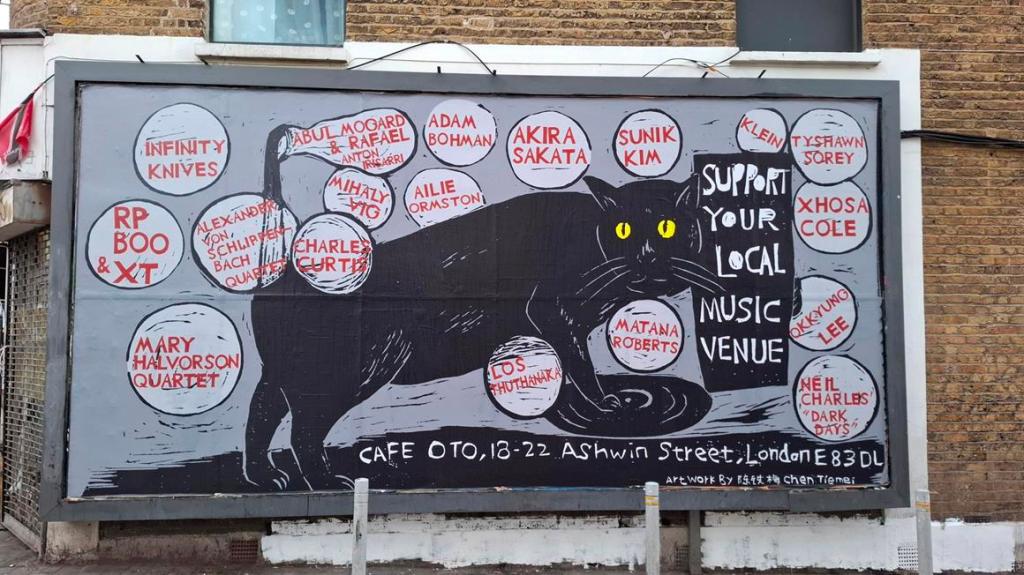 INFINITY
KNIVES
ABUL MOGARD
& RAFAEL
ANTON
IRISARRI
ADAM
BOHMAN
AKIRA
SAKATA
SUNIK
KIM
KLEIN
TYSHAWN
SOREY
MIHALY
VIG
AILIE
ORMSTON
RP
BOO
& XT
ALEXANDER
VON
SCHLIPPEN-
BACH
QUARTET
CHARLES
CURTIS
XHOSA
COLE
SUPPORT
YOUR
LOCAL
MUSIC
VENUE
OKKYUNG
LEE
MATANA
ROBERTS
MARY
HALVORSON
QUARTET
LOS
THUTHANAKA
NEIL
CHARLES'
"DARK
DAYS"
CAFE OTO, 18-22 Ashwin Street, London E8 3DL
Artwork By 陈铁梅 Chen Tiemei